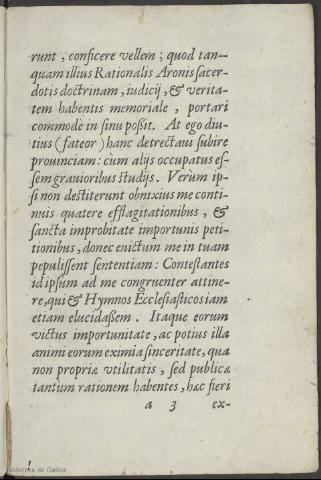 runt, conficere vellem; quod tan-
quam illius Rationalis Aronis sacer-
dotis doctrinam, iudicij, & verita-
tem habentis memoriale, portari
commodè in sinu possit. At ego diu-
tius (fateor) hanc detrectaui subire
prouinciam: cùm alijs occupatus es-
sem grauioribus studijs. Verùm ip-
si non destiterunt obnixius me conti-
nuis quatere efflagitationibus, &
sancta improbitate importunis peti-
tionibus, donec euictum me in tuam
pepulissent sententiam: Contestantes
id ipsum ad me congruenter attine-
re, qui & Hymnos Ecclesiasticos iam
etiam elucidassem. Itaque eorum
victus importunitate, ac potius illa
animi eorum eximia sinceritate, qua
non propriæ vtilitatis, sed publicæ
tantùm rationem habentes, hæc fieri
a 3 ex-
Biblioteca de Galicia